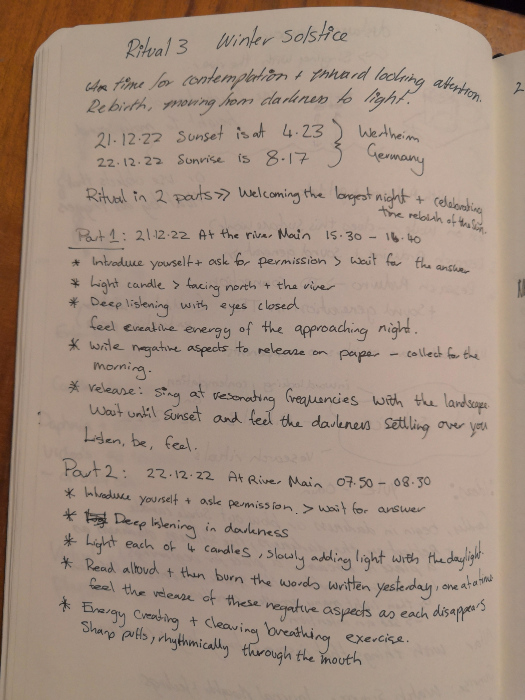 Ritual 3 Winter Solstice
A time for contemplation + inward looking attention.
Rebirth, moving from darkness to light.
21.12.22 Sunset is at 4.23 } Wertheim
22.12.22 Sunrise is 8.17 } Germany
Ritual in 2 parts >> Welcoming the longest night + celebrating
the rebirth of the Sun.
Part 1: 21.12.22 At the river Main 15.30 - 16.40
* Introduce yourself + ask for permission > wait for the answer
* Light candle > facing north + the river
* Deep listening with eyes closed
feel creative energy of the approaching night.
* write negative aspects to release on paper - collect for the
morning.
* release: sing at resonating frequencies with the landscape
Wait until sunset and feel the darkness settling over you
Listen, be, feel.
Part 2: 22.12.22 At River Main 07.50 - 08.30
* Introduce yourself + ask permission. > wait for answer
* Deep listening in darkness
* Light each of 4 candles, slowly adding light with the daylight
* Read aloud + then burn the words written yesterday, one at a time
feel the release of these negative aspects as each disappears
* Energy creating + cleaving breathing exercise.
Sharp puffs, rhythmically through the mouth
2